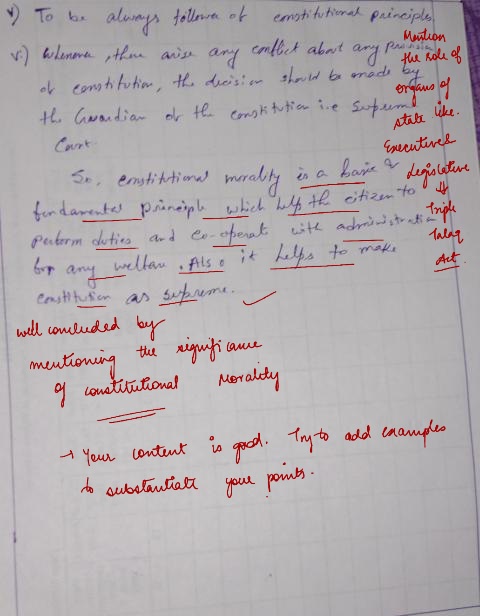 v) To be always follower of constitutional principles.
vi) Whenever, there arise any conflict about any provision
of constitution, the decision should be made by
the Guardian of the constitution i.e Supreme
Court.
So, constitutional morality is a basic &
fundamental principle which help the citizen to
perform duties and co-operat with administration
for any welfare. Also it helps to make
constitution as supreme.
Mention
the role of
organs of
state like.
Executive &
Legislative
⇓
Triple
Talaq
Act.
well concluded by
mentioning the significance
of constitutional Morality
→ Your content is good. Try to add examples
to substantiate your points.